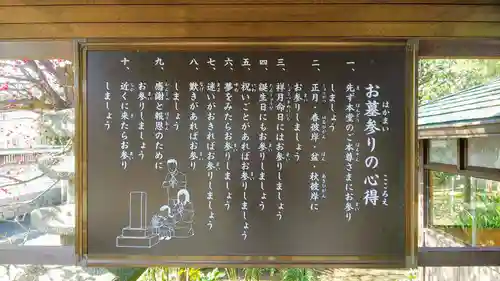 お墓参りの心得
はかまい
こころえ
一、先ず本堂のご本尊さまにお参り
しましょう
二、正月・春彼岸・盆・秋彼岸に
お参りしましょう
三、祥月命日にはお参りしましょう
四、誕生日にもお参りしましょう
五、祝いごとがあればお参りしましょう
六、夢でみたらお参りしましょう
七、迷いがおきればお参りしましょう
八、歎きがあればお参り
しましょう
九、感謝と報恩のために
お参りしましょう
十、近くに来たらお参り
しましょう